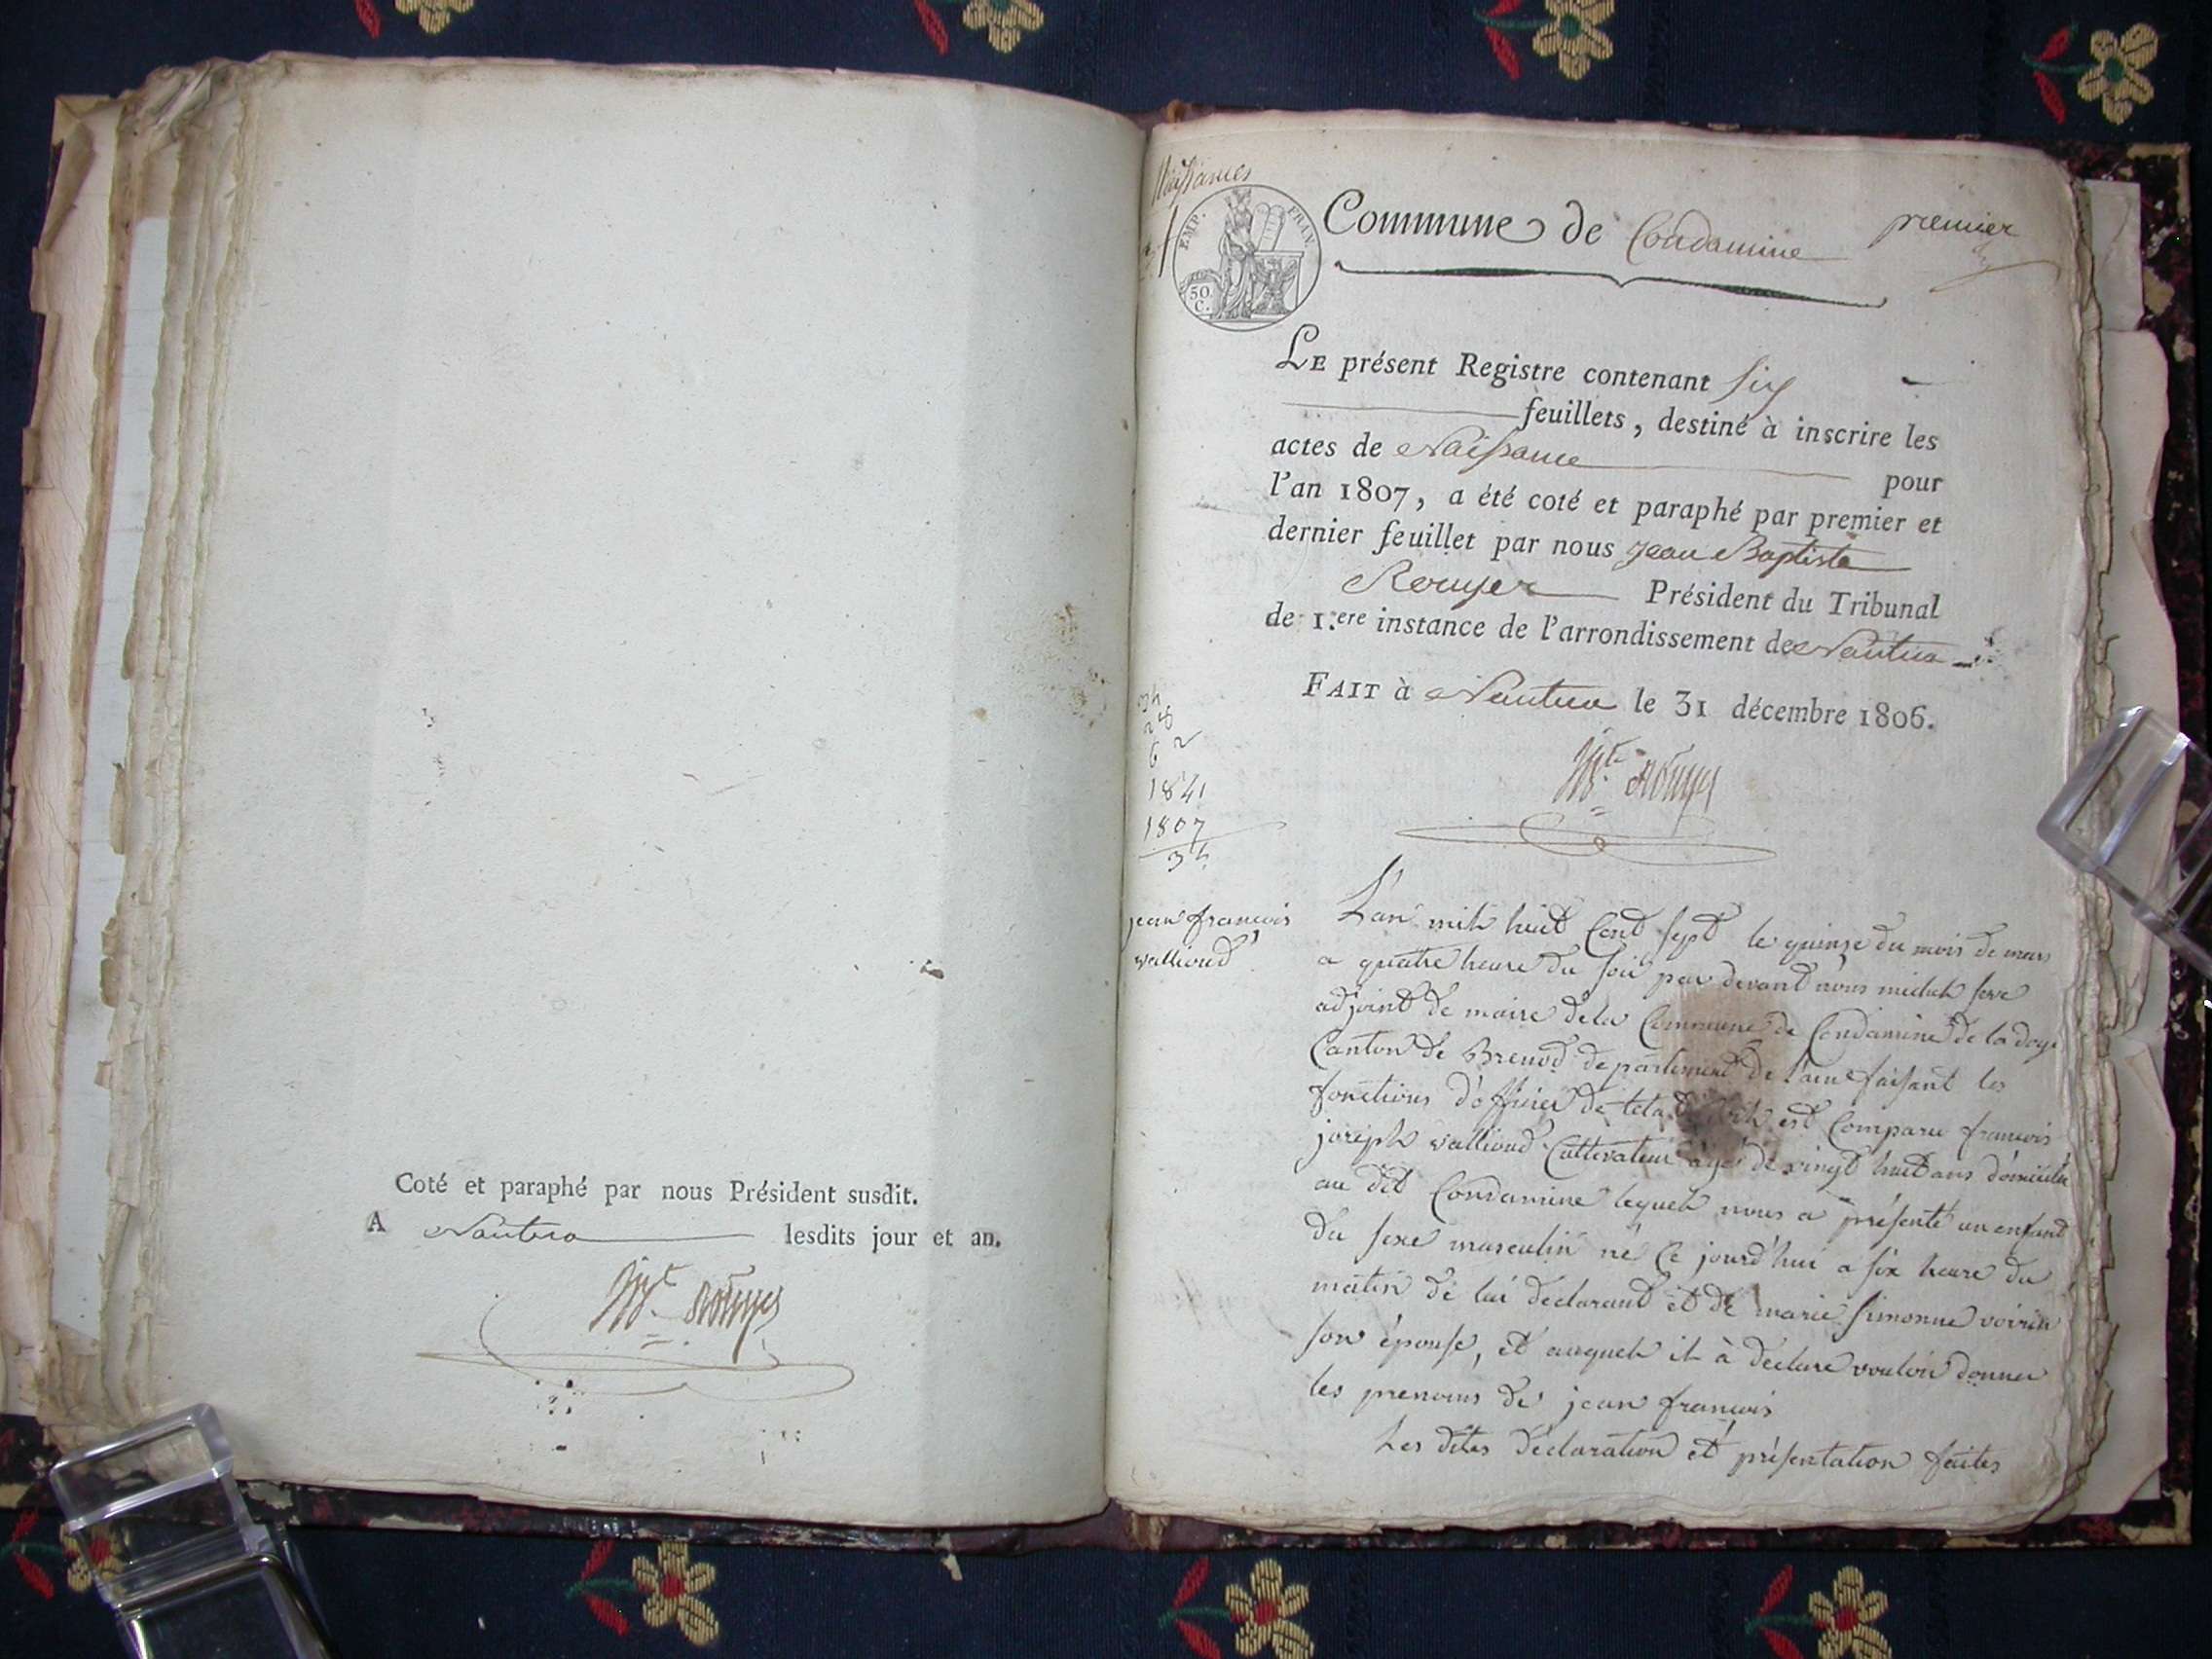 Coté et paraphé par nous Président susdit.
A Nantua lesdits jour et an.
Bte. Rouyer
Naissances
EMP. FRAN.
50 C.
Commune de Condamine
premier
LE présent Registre contenant six
feuillets, destiné à inscrire les
actes de Naissance pour
l'an 1807, a été coté et paraphé par premier et
dernier feuillet par nous Jean Baptiste
Rouyer Président du Tribunal
de 1.ere instance de l'arrondissement de Nantua
FAIT à Nantua le 31 décembre 1806.
Bte. Rouyer
34
28
6 2
1841
1807
34
jean francois
vallioud
L'an mil huit Cent sept le quinze du mois de mars
a quatre heure du soir par devant nous michel
adjoint de maire dela Commune de Condamine de la doye
Canton de Brenod departement de l'ain faisant les
fonctions d'officier de letat est Comparu francois
joseph vallioud Cultivateur agé de vingt huit ans domicilié
au dit Condamine lequel nous a présenté un enfant
du sexe masculin né Ce jourd'hui a six heure du
matin de lui declarant et de marie simonne
son épouse, et auquel il à declare vouloir donner
les prenoms de jean francois
Les dites declaration et présentation faites